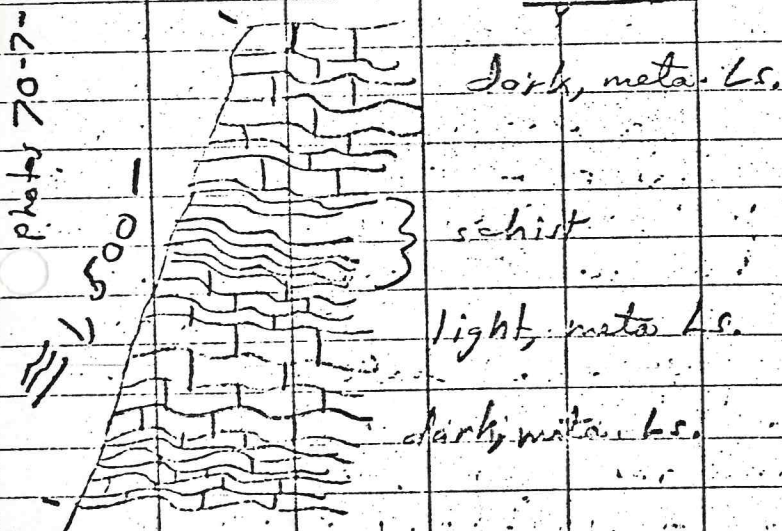 photos 70-7-
dark, meta. Ls.
500
schist
light, meta Ls.
dark, meta. Ls.